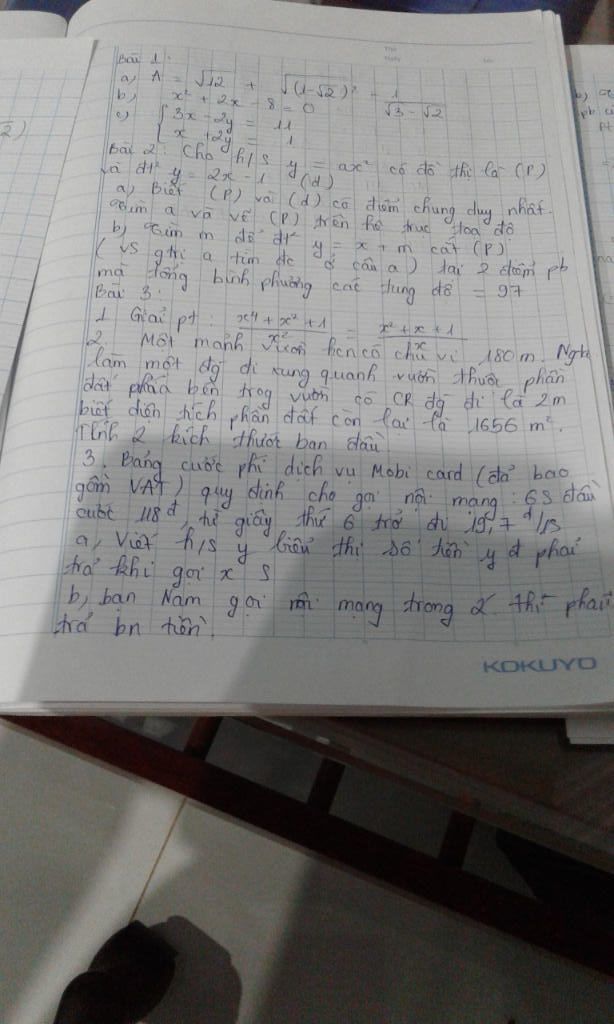 Bài 1:
a) A = √12 + √(1-√2)² - 1/(√3 - √2)
b) x² + 2x - 8 = 0
c) { 3x - 2y = 11
x + 2y = 1
Bài 2: Cho h/s y = ax² có đồ thị là (P)
và đt y = 2x - 1 (d)
a) Biết (P) và (d) có điểm chung duy nhất.
Tìm a và vẽ (P) trên hệ trục toạ độ
b) Tìm m để đt y = x + m cắt (P)
(vs gtri a tìm đc ở câu a) tại 2 điểm pb
mà tổng bình phương các tung độ = 97
Bài 3:
1 Giải pt: (x⁴ + x² + 1)/x² = (x² + x + 1)/x
2. Một mảnh vườn hcn có chu vi 180 m. Ngta
làm một đg đi xung quanh vườn thuộc phần
đất phía bên trog vườn có CR đg đi là 2m
biết diện tích phần đất còn lại là 1656 m².
Tính 2 kích thước ban đầu
3. Bảng cước phí dịch vụ Mobi card (đã bao
gồm VAT) quy định cho gọi nội mạng: 6s đầu
cước 118đ, từ giây thứ 6 trở đi 19,7 đ/1s
a, Viết h/s y biểu thị số tiền y đ phải
trả khi gọi x s
b, bạn Nam gọi nội mạng trong 2 thì phải
trả bn tiền.
KOKUYO